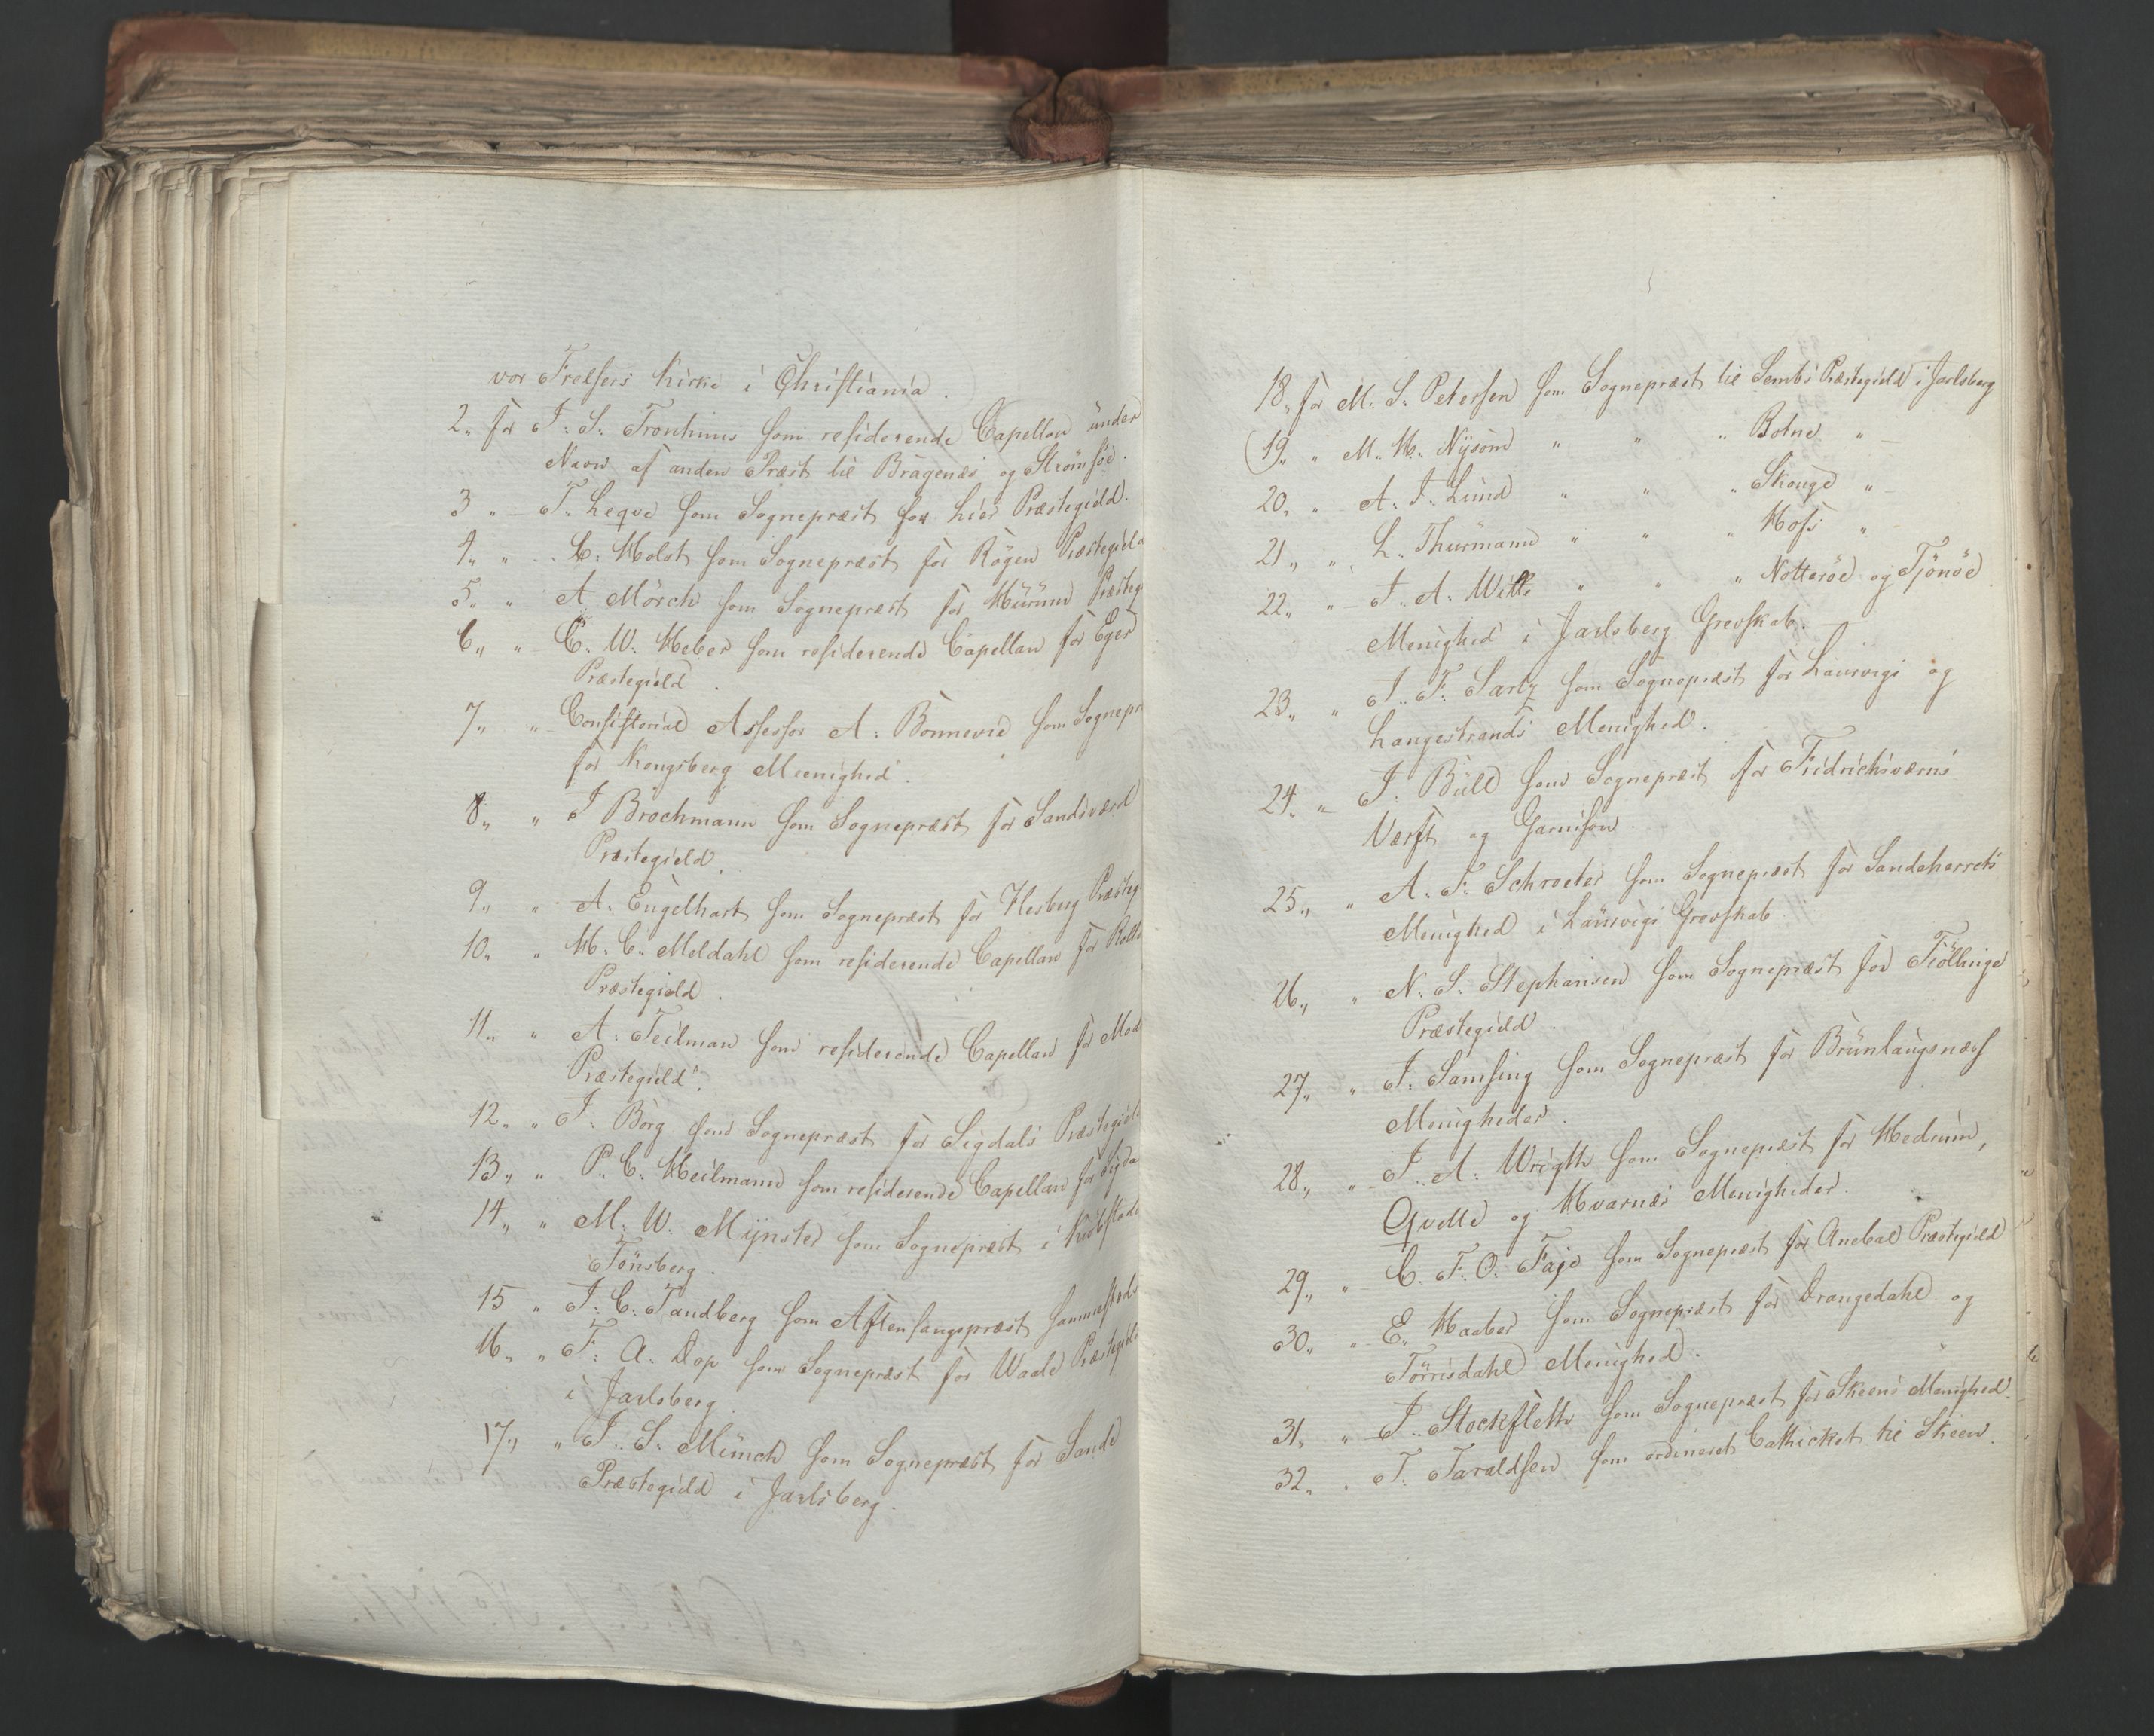 vor Frelsers Kirke i Christiania.
2„ for J: S: Tronhuus som residerende Capellan under
Navn af anden Præst til Bragenæs og Strömsöe.
3 „ – T. Leqve som Sognepræst for Liers Præstegield.
4„ „ – L: Holst som Sognepræst for Röyen Præstegield
5„ „ A Mörch som Sognepræst for Hurum Præsteg
6„ „ C. W. Heber som residerende Capellan for Eger
Præstegield.
7„ „ – Consistorial Assessor A: Bonnevie som Sognepr
for Kongsberg Meenighed.
8„ „ J Brochmann som Sognepræst for Sandsværd
Præstegield.
9„ „ A: Engelhart som Sognepræst for Flesberg Præsteg
10„ „ H. C. Meldahl som residerende Capellan for Roll
Præstegield.
11„ „ A: Teilman som residerende Capellan for Mod
Præstegield.
12„ „ J: Borg som Sognepræst for Sigdals Præstegield
13„ „ P. C. Heilmann som residerende Capellan for Sigda
14„ „ M. W. Mynster som Sognepræst i Kiöbstade
Tönsberg.
15 „ J: C: Tandberg som Aftensangspræst sammesteds
16„ „ F: A. Dop som Sognepræst for Waale Præstegield
i Jarlsberg.
17„ „ J. S. Münch som Sognepræst for Sande
Præstegield i Jarlsberg.
18„ for M. S. Petersen som Sognepræst til Sembs Præstegield i Jarlsberg
(19„ „ M. H. Nysom „ „ „ Botne „ –
20„ „ A. J. Lund „ „ „ Skouge „ –
21„ „ L. Thurmann „ „ „ Hofs „
22„ „ – J. A. Wille „ „ „ Notteröe og Tjömöe
Menighed i Jarlsberg Grevskab.
23„ „ J. F. Sartz som Sognepræst for Laurvigs og
Langestrands Menighed.
24„ „ J. Bull som Sognepræst for Fridrichsværns
Værft og Garnison.
25„ „ A. F. Schroeter som Sognepræst for Sandeherreds
Menighed i Laurvigs Grevskab.
26„ „ N. S. Stephansen som Sognepræst for Tiöllinge
Præstegield.
27„ „ J. Samsing som Sognepræst for Brunlaugsnæss
Menigheder.
28„ „ J. A. Wrigth som Sognepræst for Hedrum,
Qvelle og Hvarnæs Menigheder.
29„ „ – C. F. O. Faje som Sognepræst for Anebal Præstegield
30„ „ – E. Haaber som Sognepræst for Drangedahl og
Törrisdahl Menighed.
31„ „ – J. Stockfleth som Sognepræst for Skeens Menighed.
32„ „ T. Taraldsen som ordineret Cathicket til Skeen.